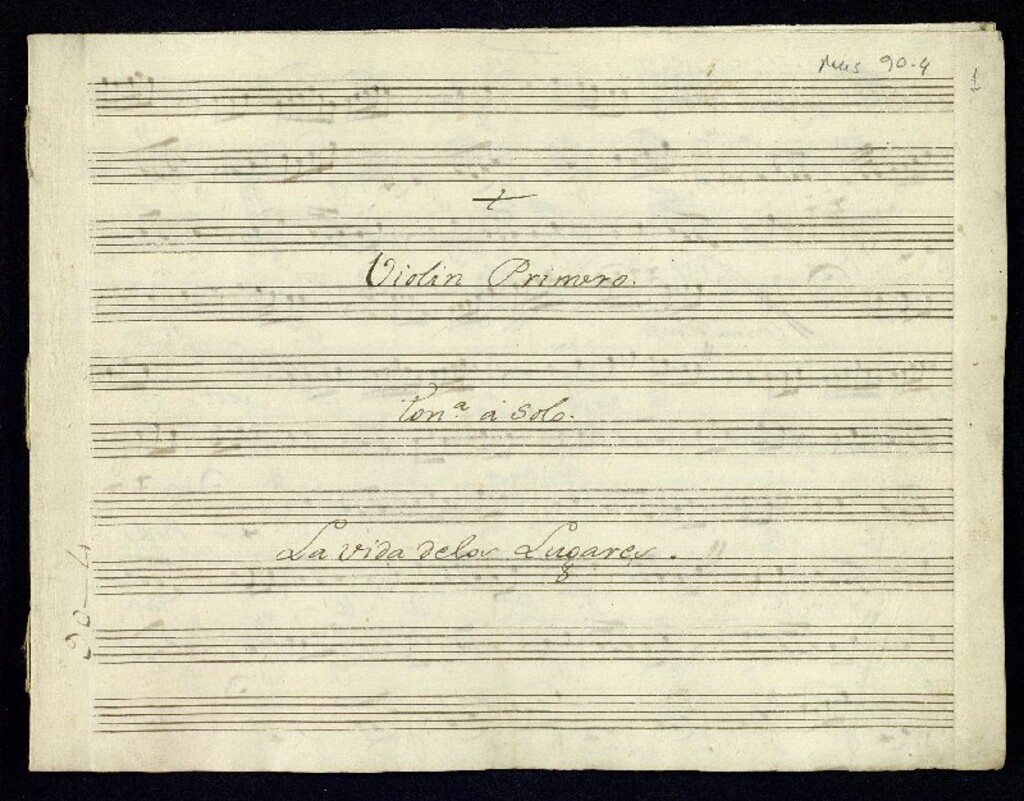 Mus 90-4
1
+
Violin Primero.
Ton.ª a Solo.
La vida delos Lugares.
90-4